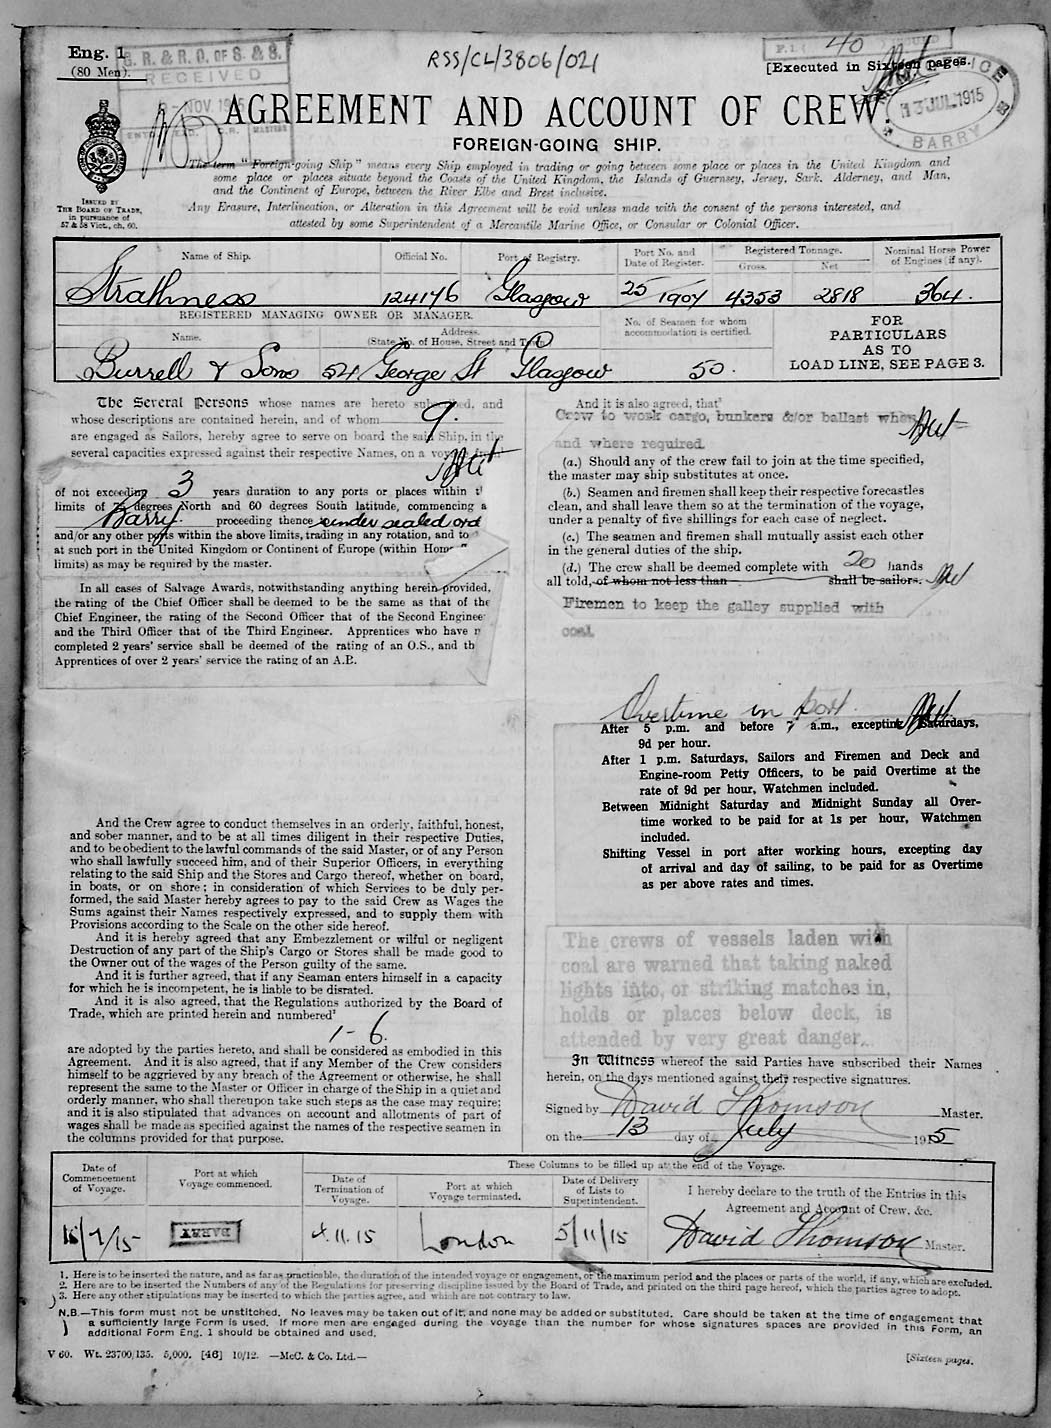 Eng. 1
(80 Men).
G. R. & R. O. OF S. & S.
RECEIVED
NOV. 1915
RSS/CL/3806/021
40
[Executed in Sixteen pages.
13 JUL 1915
BARRY
AGREEMENT AND ACCOUNT OF CREW.
FOREIGN-GOING SHIP.
ISSUED BY
THE BOARD OF TRADE,
in pursuance of
57 & 58 Vict., ch. 60.
The term "Foreign-going Ship" means every Ship employed in trading or going between some place or places in the United Kingdom and
some place or places situate beyond the Coasts of the United Kingdom, the Islands of Guernsey, Jersey, Sark, Alderney, and Man,
and the Continent of Europe, between the River Elbe and Brest inclusive.
Any Erasure, Interlineation, or Alteration in this Agreement will be void unless made with the consent of the persons interested, and
attested by some Superintendent of a Mercantile Marine Office, or Consular or Colonial Officer.
Name of Ship. Official No. Port of Registry. Port No. and Date of Register. Registered Tonnage. Gross. Net Nominal Horse Power of Engines (if any).
Strathness 124176 Glasgow 25/1907 4353 2818 364.
REGISTERED MANAGING OWNER OR MANAGER.
Name. Address. (State No. of House, Street and Town
No. of Seamen for whom accommodation is certified.
Burrell & Sons 54 George St Glasgow 50.
FOR
PARTICULARS
AS TO
LOAD LINE, SEE PAGE 3.
The Several Persons whose names are hereto subscribed, and
whose descriptions are contained herein, and of whom 9.
are engaged as Sailors, hereby agree to serve on board the said Ship, in the
several capacities expressed against their respective Names, on a voyage
of not exceeding 3 years duration to any ports or places within
limits of 75 degrees North and 60 degrees South latitude, commencing a
Barry proceeding thence under sealed ord
and/or any other ports within the above limits, trading in any rotation, and to
at such port in the United Kingdom or Continent of Europe (within Home
limits) as may be required by the master.
In all cases of Salvage Awards, notwithstanding anything herein provided,
the rating of the Chief Officer shall be deemed to be the same as that of the
Chief Engineer, the rating of the Second Officer that of the Second Enginee
and the Third Officer that of the Third Engineer. Apprentices who have n
completed 2 years' service shall be deemed of the rating of an O.S., and th
Apprentices of over 2 years' service the rating of an A.B.
And the Crew agree to conduct themselves in an orderly, faithful, honest,
and sober manner, and to be at all times diligent in their respective Duties,
and to be obedient to the lawful commands of the said Master, or of any Person
who shall lawfully succeed him, and of their Superior Officers, in everything
relating to the said Ship and the Stores and Cargo thereof, whether on board,
in boats, or on shore; in consideration of which Services to be duly per-
formed, the said Master hereby agrees to pay to the said Crew as Wages the
Sums against their Names respectively expressed, and to supply them with
Provisions according to the Scale on the other side hereof.
And it is hereby agreed that any Embezzlement or wilful or negligent
Destruction of any part of the Ship's Cargo or Stores shall be made good to
the Owner out of the wages of the Person guilty of the same.
And it is further agreed, that if any Seaman enters himself in a capacity
for which he is incompetent, he is liable to be disrated.
And it is also agreed, that the Regulations authorized by the Board of
Trade, which are printed herein and numbered²
1-6.
are adopted by the parties hereto, and shall be considered as embodied in this
Agreement. And it is also agreed, that if any Member of the Crew considers
himself to be aggrieved by any breach of the Agreement or otherwise, he shall
represent the same to the Master or Officer in charge of the Ship in a quiet and
orderly manner, who shall thereupon take such steps as the case may require;
and it is also stipulated that advances on account and allotments of part of
wages shall be made as specified against the names of the respective seamen in
the columns provided for that purpose.
And it is also agreed, that³
Crew to work cargo, bunkers &/or ballast when
and where required.
(a.) Should any of the crew fail to join at the time specified,
the master may ship substitutes at once.
(b.) Seamen and firemen shall keep their respective forecastles
clean, and shall leave them so at the termination of the voyage,
under a penalty of five shillings for each case of neglect.
(c.) The seamen and firemen shall mutually assist each other
in the general duties of the ship.
(d.) The crew shall be deemed complete with 20 hands
all told, of whom not less than shall be sailors.
Firemen to keep the galley supplied with
coal
Overtime in port.
After 5 p.m. and before 7 a.m., excepting Saturdays,
9d per hour.
After 1 p.m. Saturdays, Sailors and Firemen and Deck and
Engine-room Petty Officers, to be paid Overtime at the
rate of 9d per hour, Watchmen included.
Between Midnight Saturday and Midnight Sunday all Over-
time worked to be paid for at 1s per hour, Watchmen
included.
Shifting Vessel in port after working hours, excepting day
of arrival and day of sailing, to be paid for as Overtime
as per above rates and times.
The crews of vessels laden with
coal are warned that taking naked
lights into, or striking matches in,
holds or places below deck, is
attended by very great danger.
In Witness whereof the said Parties have subscribed their Names
herein, on the days mentioned against their respective signatures.
Signed by David Thomson Master.
on the 13 day of July 1915
Date of Commencement of Voyage. Port at which Voyage commenced. These Columns to be filled up at the end of the Voyage.
Date of Termination of Voyage. Port at which Voyage terminated. Date of Delivery of Lists to Superintendent.
I hereby declare to the truth of the Entries in this
Agreement and Account of Crew, &c.
15/7/15 BARRY 4.11.15 London 5/11/15 David Thomson Master.
1. Here is to be inserted the nature, and as far as practicable, the duration of the intended voyage or engagement, or the maximum period and the places or parts of the world, if any, which are excluded.
2. Here are to be inserted the Numbers of any of the Regulations for preserving discipline issued by the Board of Trade, and printed on the third page hereof, which the parties agree to adopt.
3. Here any other stipulations may be inserted to which the parties agree, and which are not contrary to law.
N.B.—This form must not be unstitched. No leaves may be taken out of it, and none may be added or substituted. Care should be taken at the time of engagement that
a sufficiently large Form is used. If more men are engaged during the voyage than the number for whose signatures spaces are provided in this Form, an
additional Form Eng. 1 should be obtained and used.
V 60. Wt. 23700/135. 5,000. [46] 10/12. —McC. & Co. Ltd.—
[Sixteen pages.